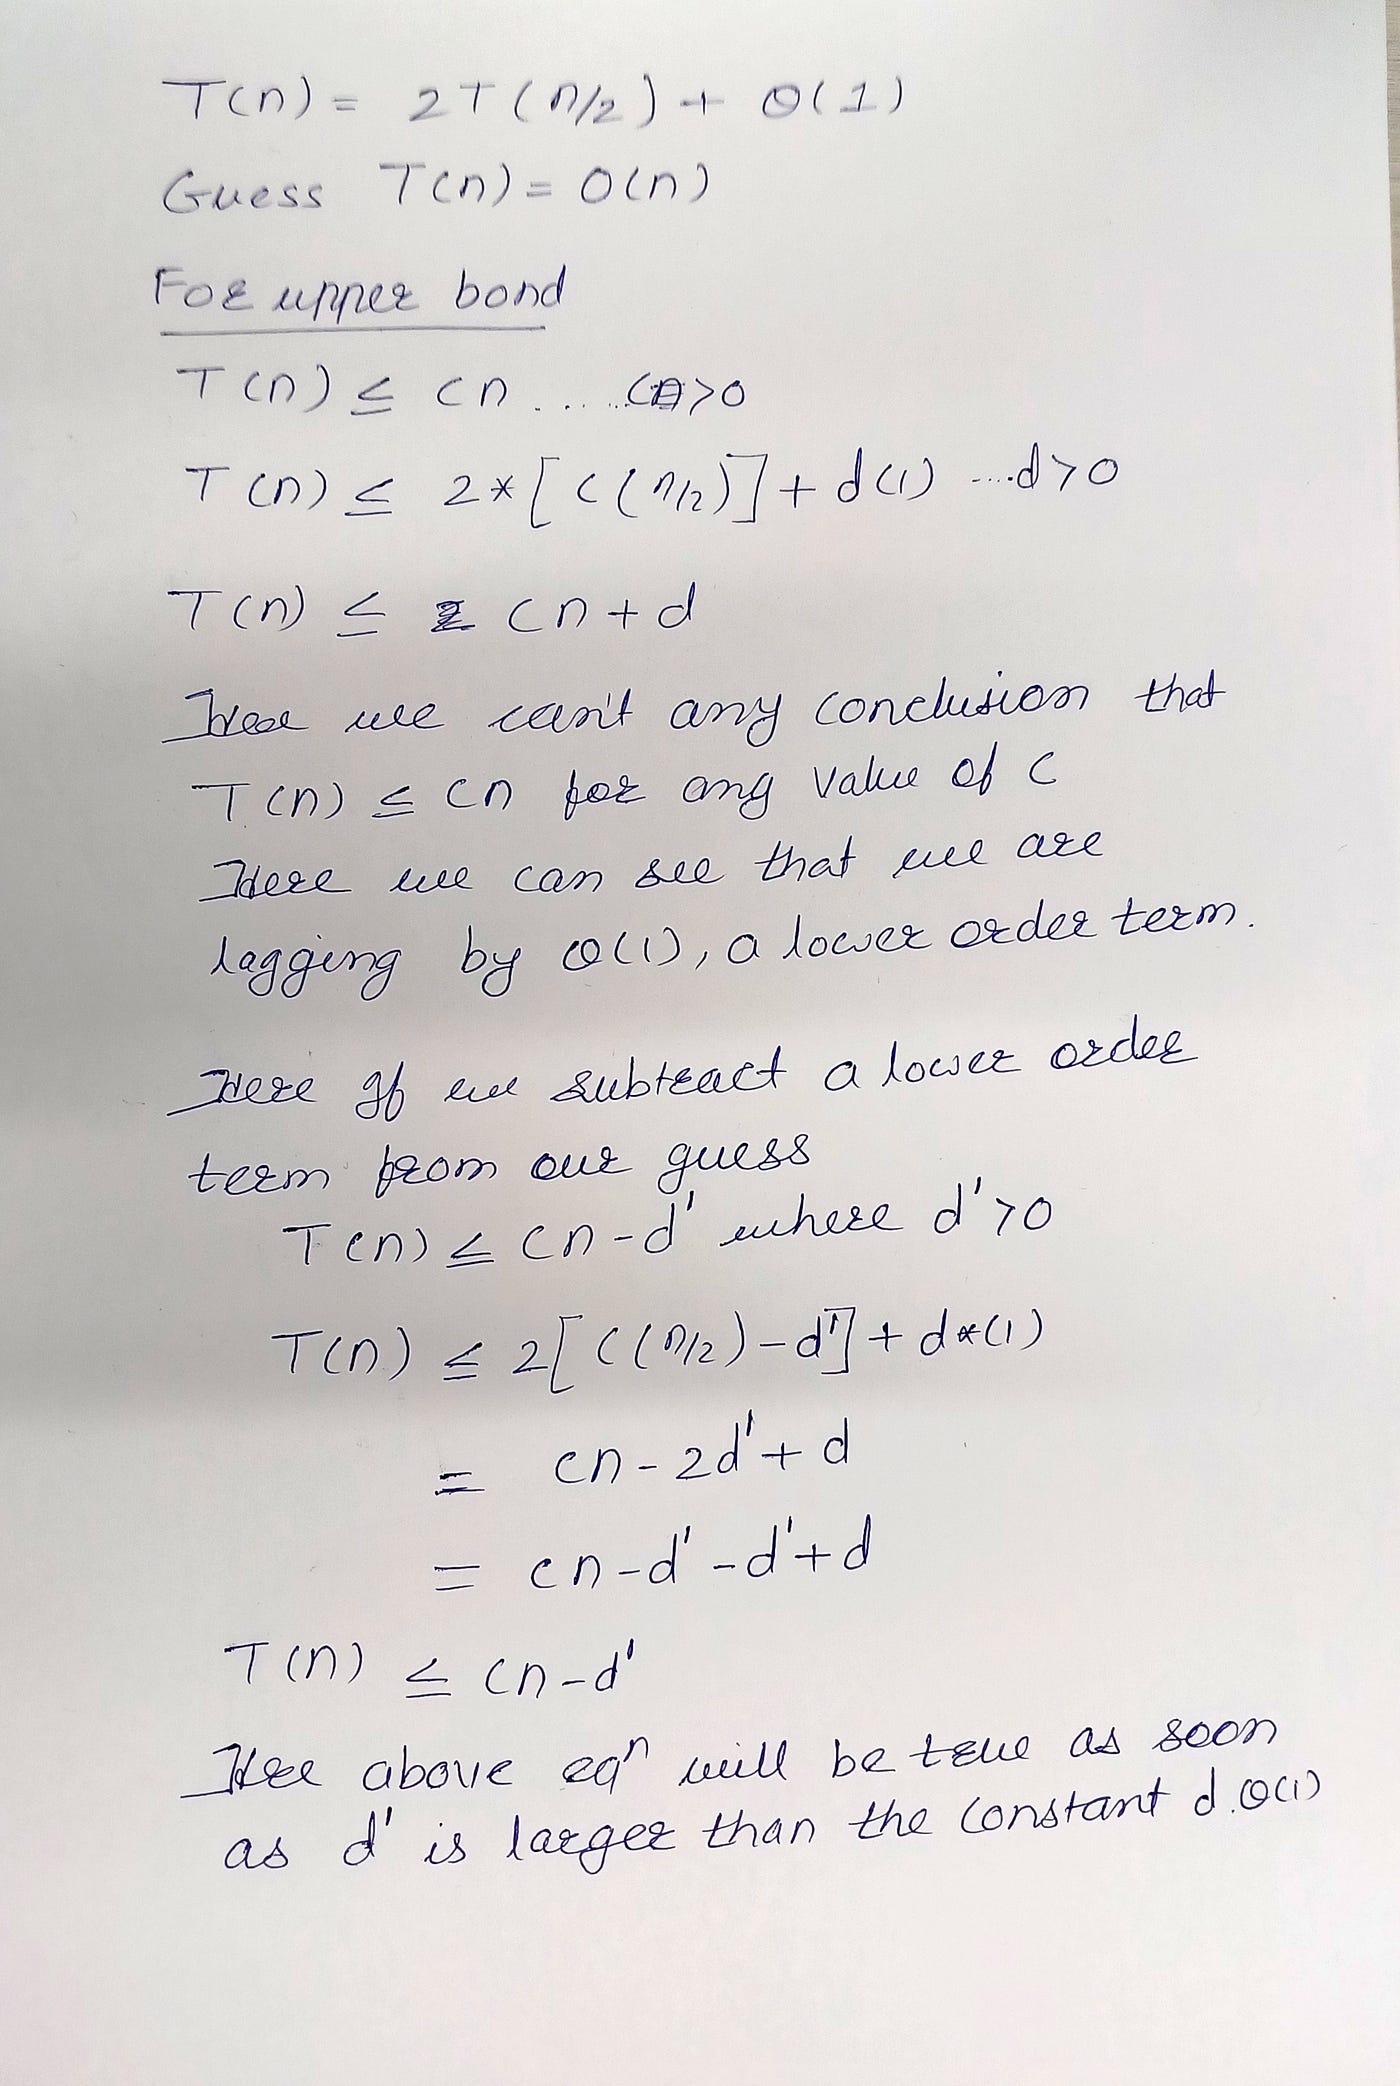 T(n) = 2T(n/2) + O(1)
Guess T(n) = O(n)
For upper bond
T(n) ≤ cn .... c>0
T(n) ≤ 2*[c(n/2)] + d(1) ....d>0
T(n) ≤ cn + d
Here we can't any conclusion that
T(n) ≤ cn for any value of c
Here we can see that we are
lagging by O(1), a lower order term.
Here If we subtract a lower order
term from our guess
T(n) ≤ cn - d' where d' > 0
T(n) ≤ 2[c(n/2) - d'] + d*(1)
= cn - 2d' + d
= cn - d' - d' + d
T(n) ≤ cn - d'
Here above eqⁿ will be true as soon
as d' is larger than the constant d.O(1)